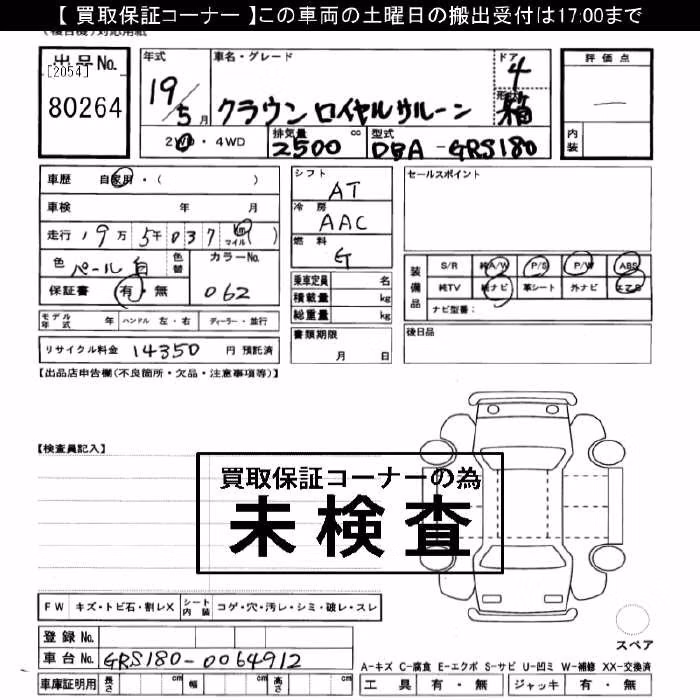 【 買取保証コーナー 】この車両の土曜日の搬出受付は17:00まで
出品No.
[2054]
80264
年式
19 5 月
車名・グレード
クラウン ロイヤルサルーン
ドア
4
形状
箱
評価点
内装
2WD・4WD
排気量 cc
2500
型式
DBA-GRS180
車歴 自家用・( )
車検 年 月
走行 19万 5千 037 km マイル
色 パール白
色替
カラーNo.
062
保証書 有・無
モデル年式 年
ハンドル 左・右
ディーラー・並行
リサイクル料金 14350 円 預託済
シフト
AT
冷房
AAC
燃料
G
乗車定員 名
積載量 kg
総重量 kg
書類期限
月 日
セールスポイント
装備品
S/R 純A/W P/S P/W ABS
純TV 純ナビ 革シート 外ナビ エアB
ナビ型番:
後日品
【出品店申告欄(不良箇所・欠品・注意事項等)】
【検査員記入】
買取保証コーナーの為
未検査
FW キズ・トビ石・割レX
シート内装 コゲ・穴・汚レ・シミ・破レ・スレ
登録No.
車台No. GRS180-0064912
車庫証明用 長さ cm 幅 cm 高さ cm
スペア
A-キズ C-腐食 E-エクボ S-サビ U-凹ミ W-補修 XX-交換済
工具 有・無 ジャッキ 有・無